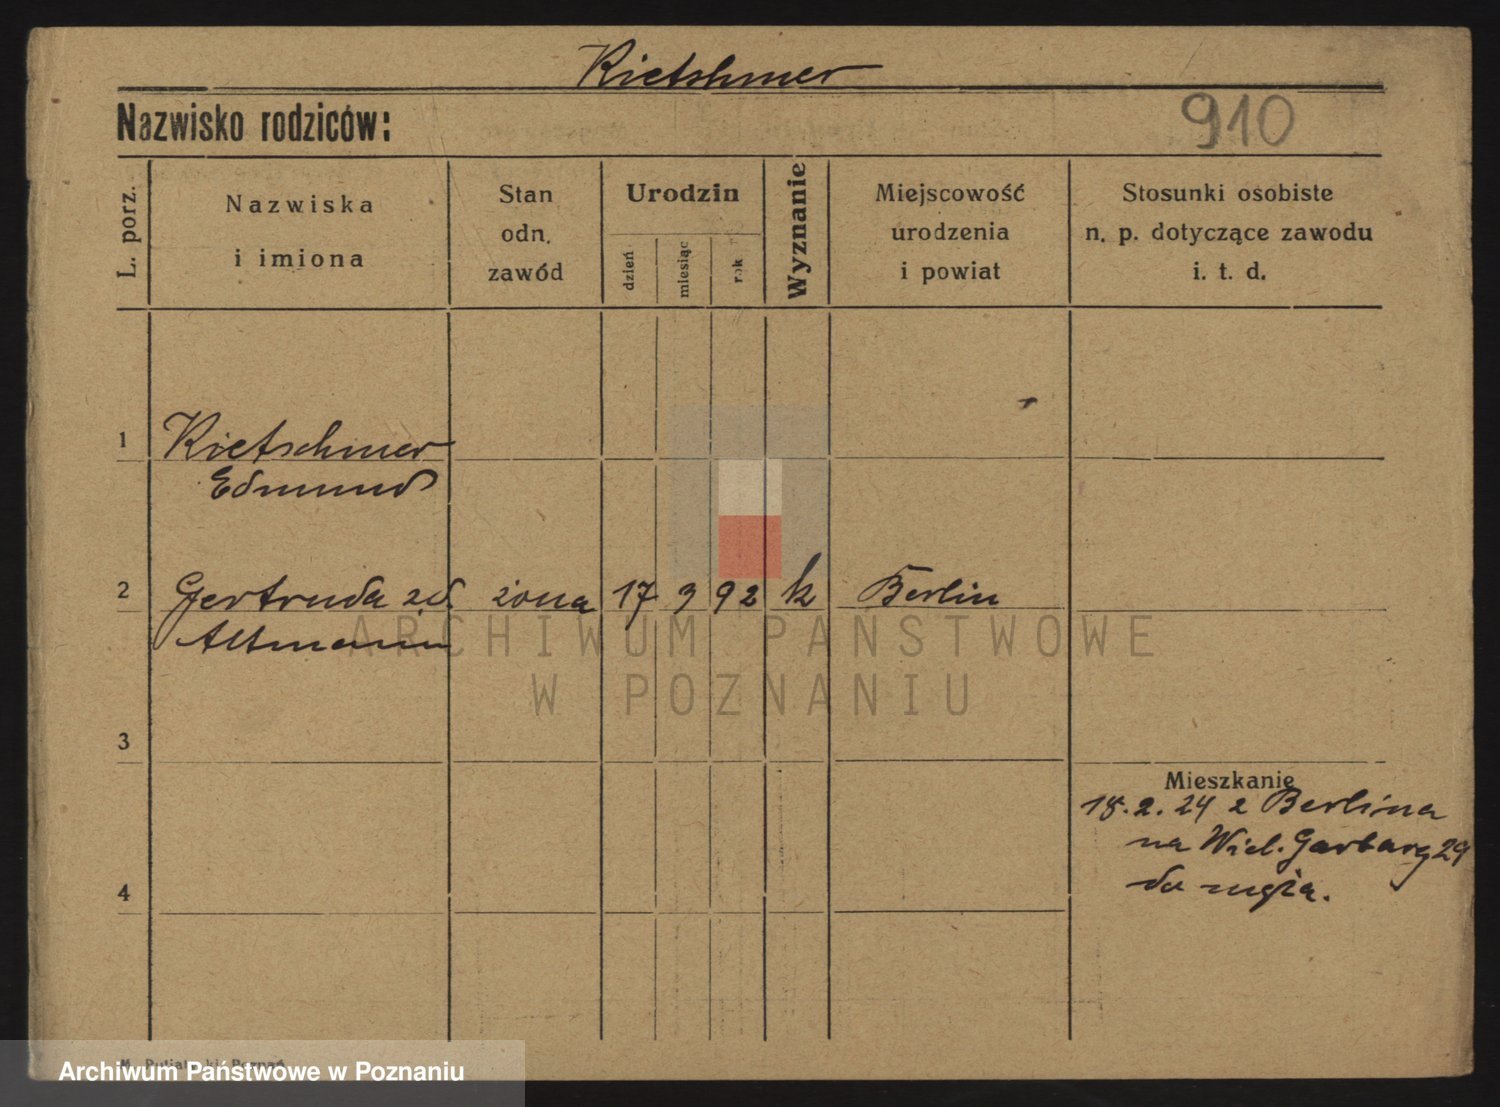 Rietshmer
Nazwisko rodziców:
910
L. porz.
Nazwiska
i imiona
Stan
odn.
zawód
Urodzin
dzień
miesiąc
rok
Wyznanie
Miejscowość
urodzenia
i powiat
Stosunki osobiste
n. p. dotyczące zawodu
i. t. d.
1
Rietschmer
Edmund
2
Gertruda zd. żona 17 3 92 k Berlin
Altmann
ARCHIWUM PAŃSTWOWE
W POZNANIU
3
Mieszkanie
18. 2. 24 z Berlina
na Wiel. Garbary 29
do męża.
4
Archiwum Państwowe w Poznaniu